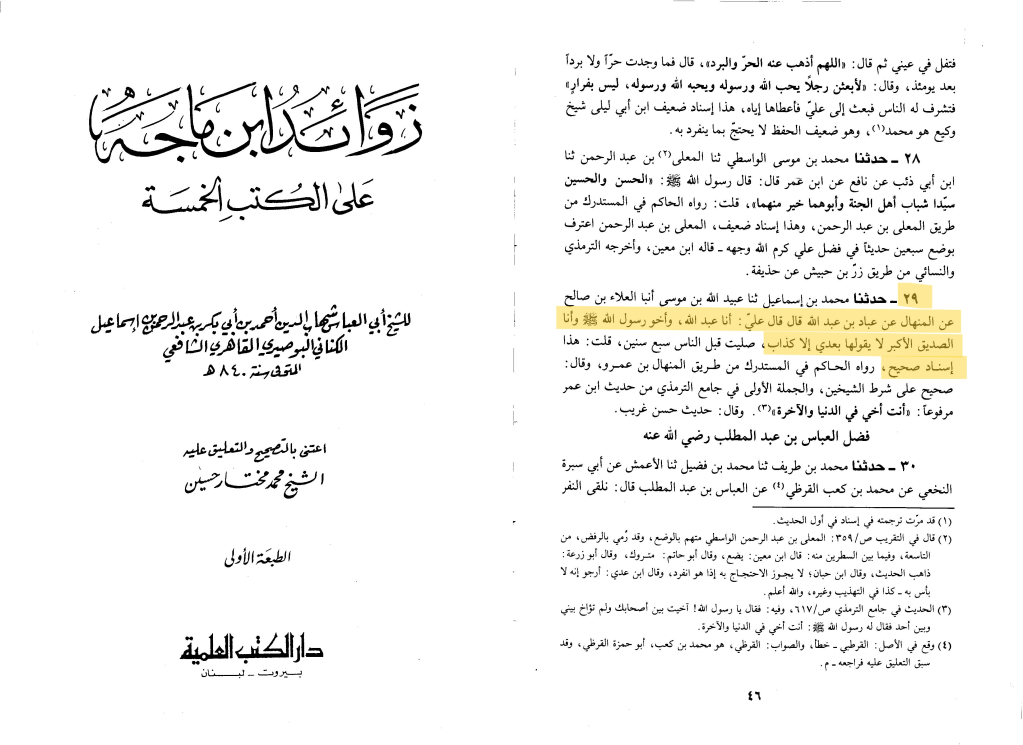 زوائد ابن ماجه
على الكتب الخمسة
للشيخ أبي العباس شهاب الدين أحمد بن أبي بكر بن عبد الرحمن بن إسماعيل
الكناني البوصيري القاهري الشافعي
المتوفى سنة ٨٤٠ هـ
اعتنى بالتصحيح والتعليق عليه
الشيخ محمد مختار حسين
الطبعة الأولى
دار الكتب العلمية
بيروت - لبنان
فتفل في عيني ثم قال: «اللهم أذهب عنه الحرّ والبرد»، قال فما وجدت حرّاً ولا برداً
بعد يومئذ، وقال: «لأبعثن رجلًا يحب الله ورسوله ويحبه الله ورسوله، ليس بفرارٍ»
فتشرف له الناس فبعث إلى عليّ فأعطاها إياه، هذا إسناد ضعيف ابن أبي ليلى شيخ
وكيع هو محمد(١)، وهو ضعيف الحفظ لا يحتجّ بما ينفرد به.
٢٨ - حدثنا محمد بن موسى الواسطي ثنا المعلى(٢) بن عبد الرحمن ثنا
ابن أبي ذئب عن نافع عن ابن عمر قال: قال رسول الله ﷺ: «الحسن والحسين
سيّدا شباب أهل الجنة وأبوهما خير منهما»، قلت: رواه الحاكم في المستدرك من
طريق المعلى بن عبد الرحمن، وهذا إسناد ضعيف، المعلى بن عبد الرحمن اعترف
بوضع سبعين حديثاً في فضل علي كرم الله وجهه - قاله ابن معين، وأخرجه الترمذي
والنسائي من طريق زرّ بن حبيش عن حذيفة.
٢٩ - حدثنا محمد بن إسماعيل ثنا عبيد الله بن موسى أنبا العلاء بن صالح
عن المنهال عن عباد بن عبد الله قال قال عليّ: أنا عبد الله، وأخو رسول الله ﷺ وأنا
الصديق الأكبر لا يقولها بعدي إلا كذاب، صليت قبل الناس سبع سنين، قلت: هذا
إسناد صحيح، رواه الحاكم في المستدرك من طريق المنهال بن عمرو، وقال:
صحيح على شرط الشيخين، والجملة الأولى في جامع الترمذي من حديث ابن عمر
مرفوعاً: «أنت أخي في الدنيا والآخرة»(٣). وقال: حديث حسن غريب.
فضل العباس بن عبد المطلب رضي الله عنه
٣٠ - حدثنا محمد بن طريف ثنا محمد بن فضيل ثنا الأعمش عن أبي سبرة
النخعي عن محمد بن كعب القرظي(٤) عن العباس بن عبد المطلب قال: نلقى النفر
(١) قد مرّت ترجمته في إسناد في أول الحديث.
(٢) قال في التقريب ص/٣٥٩: المعلى بن عبد الرحمن الواسطي متهم بالوضع، وقد رُمي بالرفض، من
التاسعة، وفيما بين السطرين منه: قال ابن معين: يضع، وقال أبو حاتم: متروك، وقال أبو زرعة:
ذاهب الحديث، وقال ابن حبان؛ لا يجوز الاحتجاج به إذا هو انفرد، وقال ابن عدي: أرجو إنه لا
بأس به - كذا في التهذيب وغيره، والله أعلم.
(٣) الحديث في جامع الترمذي ص/٦١٧، وفيه: فقال يا رسول الله! آخيت بين أصحابك ولم تؤاخ بيني
وبين أحد فقال له رسول الله ﷺ: أنت أخي في الدنيا والآخرة.
(٤) وقع في الأصل: القرطبي - خطأ، والصواب: القرظي، هو محمد بن كعب، أبو حمزة القرظي، وقد
سبق التعليق عليه فراجعه - م.
٤٦